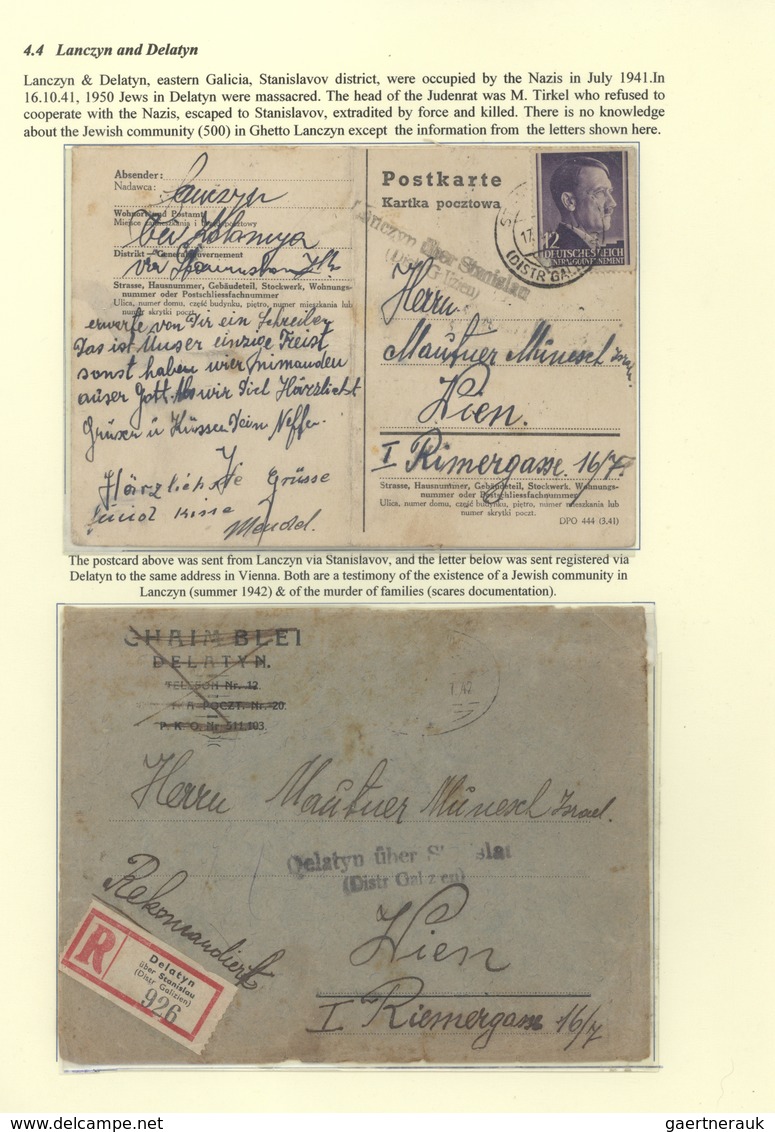 4.4 Lanczyn and Delatyn
Lanczyn & Delatyn, eastern Galicia, Stanislavov district, were occupied by the Nazis in July 1941.In
16.10.41, 1950 Jews in Delatyn were massacred. The head of the Judenrat was M. Tirkel who refused to
cooperate with the Nazis, escaped to Stanislavov, extradited by force and killed. There is no knowledge
about the Jewish community (500) in Ghetto Lanczyn except the information from the letters shown here.
Absender:
Nadawca:
Lanczyn
Wohnort und Postamt
Miejsce zamieszkania i urząd pocztowy
bei Kolomyja
Distrikt – Generalgouvernement
via
Strasse, Hausnummer, Gebäudeteil, Stockwerk, Wohnungs-
nummer oder Postschliessfachnummer
Ulica, numer domu, część budynku, piętro, numer mieszkania lub
numer skrytki poczt.
erwerte von Dir ein Schreiben
Das ist Unser einzige Treist
sonst haben wier nimanden
auser Gott. Als wir Dich Härzlichst
Grüsen u Küssen Dein Neffe.
Härzlichste Grüsse
und Kisse
Mendel.
Postkarte
Kartka pocztowa
Lanczyn über Stanislau
(Distr. Galizien)
17.
(DISTR GALIZ
12
DEUTSCHES REICH
GENERALGOUVERNEMENT
Herrn
Mautner Münesch Isr.
Wien.
I Rimergasse. 16/7.
Strasse, Hausnummer, Gebäudeteil, Stockwerk. Wohnungs-
nummer oder Postschliessfachnummer
Ulica, numer domu, część budynku, piętro, numer mieszkania lub
numer skrytki poczt.
DPO 444 (3.41)
The postcard above was sent from Lanczyn via Stanislavov, and the letter below was sent registered via
Delatyn to the same address in Vienna. Both are a testimony of the existence of a Jewish community in
Lanczyn (summer 1942) & of the murder of families (scares documentation).
CHAIM BLEI
DELATYN.
TELEFON Nr. 12
POCZT. Nr. 20.
P. K. O. Nr 511.103.
42
Herrn Mautner Münesch Israel.
Delatyn über Stanislau
(Distr Galizien)
Rekomandiert
Wien
I Riemergasse 16/7
R
Delatyn
über Stanislau
(Distr. Galizien)
926
gaertnerauk